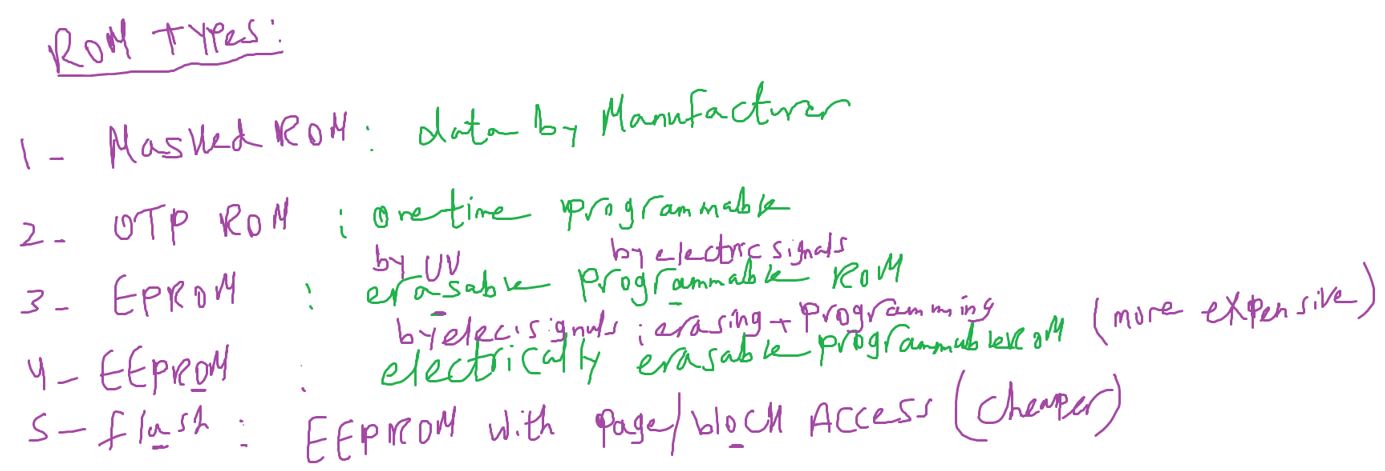 ROM TYPes:
1- Masked ROM: data by Manufacturer
2- OTP ROM : one time programmable
by UV by electric signals
3- EPROM : erasable programmable ROM
by elec. signals : erasing + programming
4- EEPROM : electrically erasable programmable ROM (more expensive)
5- flash : EEPROM with page/block ACCess (cheaper)